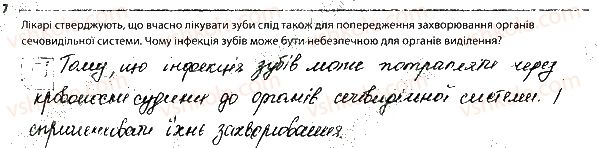 7
Лікарі стверджують, що вчасно лікувати зуби слід також для попередження захворювання органів
сечовидільної системи. Чому інфекція зубів може бути небезпечною для органів виділення?
Тому, що інфекція зубів може потрапляти через
кровоносні судини до органів сечовидільної системи. І
спричинювати їхнє захворювання.